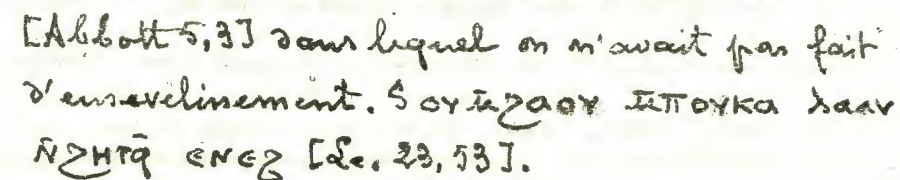 [Abbott 5,3] dans lequel on n'avait pas fait
d'ensevelissement. S ⲟⲩⲙ̅ϩⲁⲟⲩ ⲙ̅ⲡⲟⲩⲕⲁ ⲗⲁⲁⲩ
ⲛ̅ϩⲏⲧϥ̅ ⲉⲛⲉϩ [Lc. 23, 53].